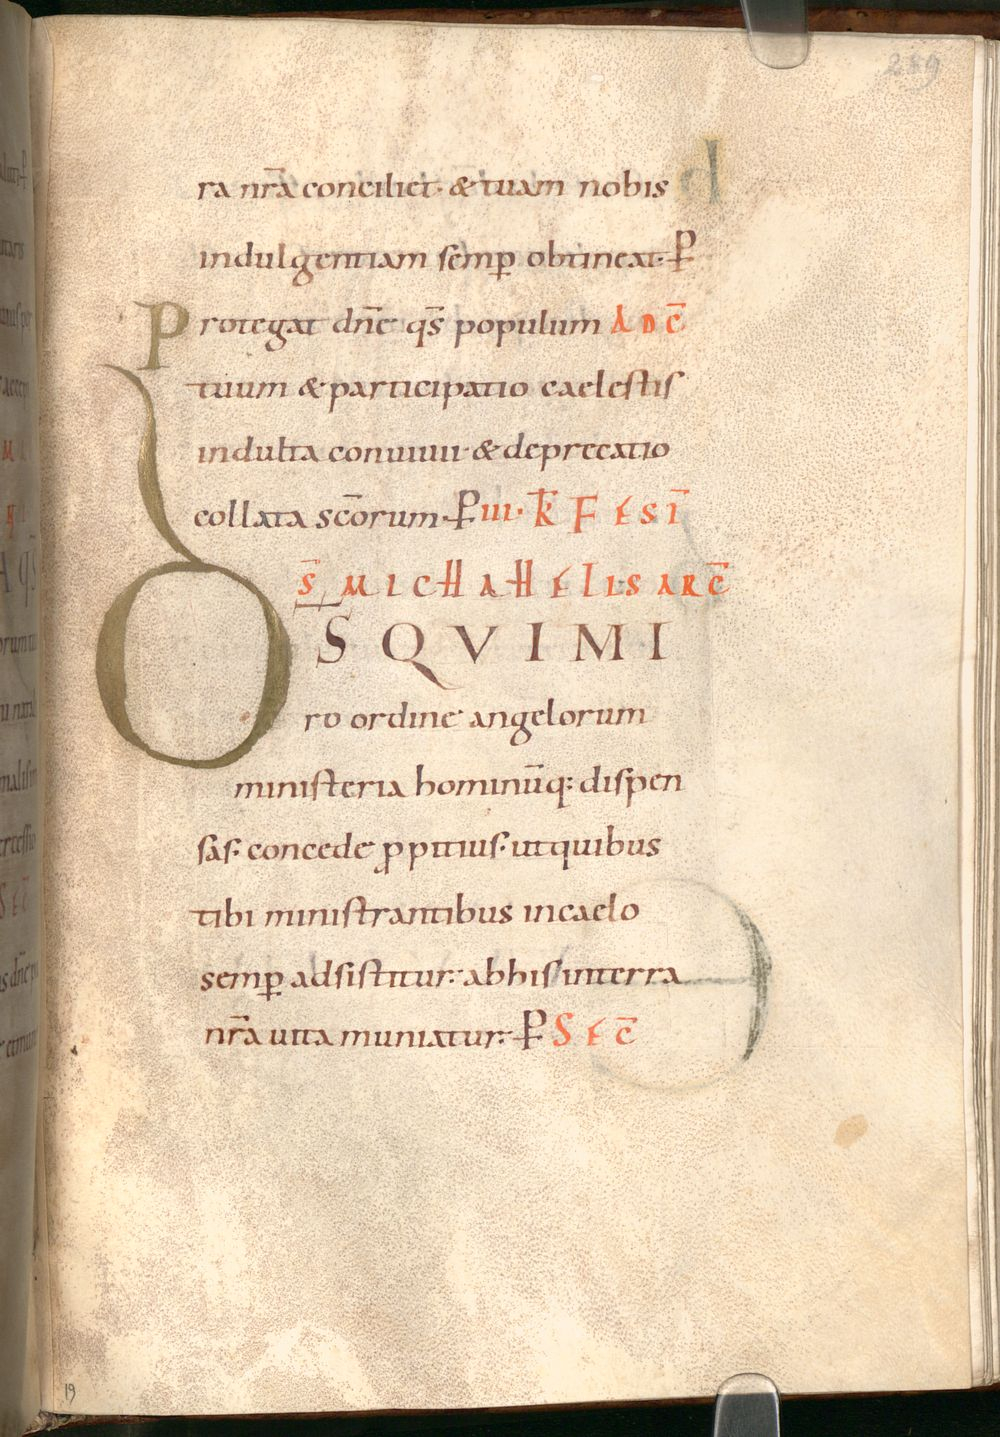 289
ra nr̄a conciliet· & tuam nobis
indulgentiam semꝑ obtineat· P̄
Protegat dn̄e qs̄ populum AD C̄
tuum & participatio caelestis
indulta conuiuii· & deprecatio
collata sc̄orum· P̄ III· K̄ FESTĪ
S̄ MICHAHELIS ARC̄
D̄S QVI MI
ro ordine angelorum
ministeria hominūq: dispen
sas· concede ꝓpitius· ut quibus
tibi ministrantibus in caelo
semꝑ adsistitur· ab his in terra
nr̄a uita muniatur· P̄ SEC̄
19